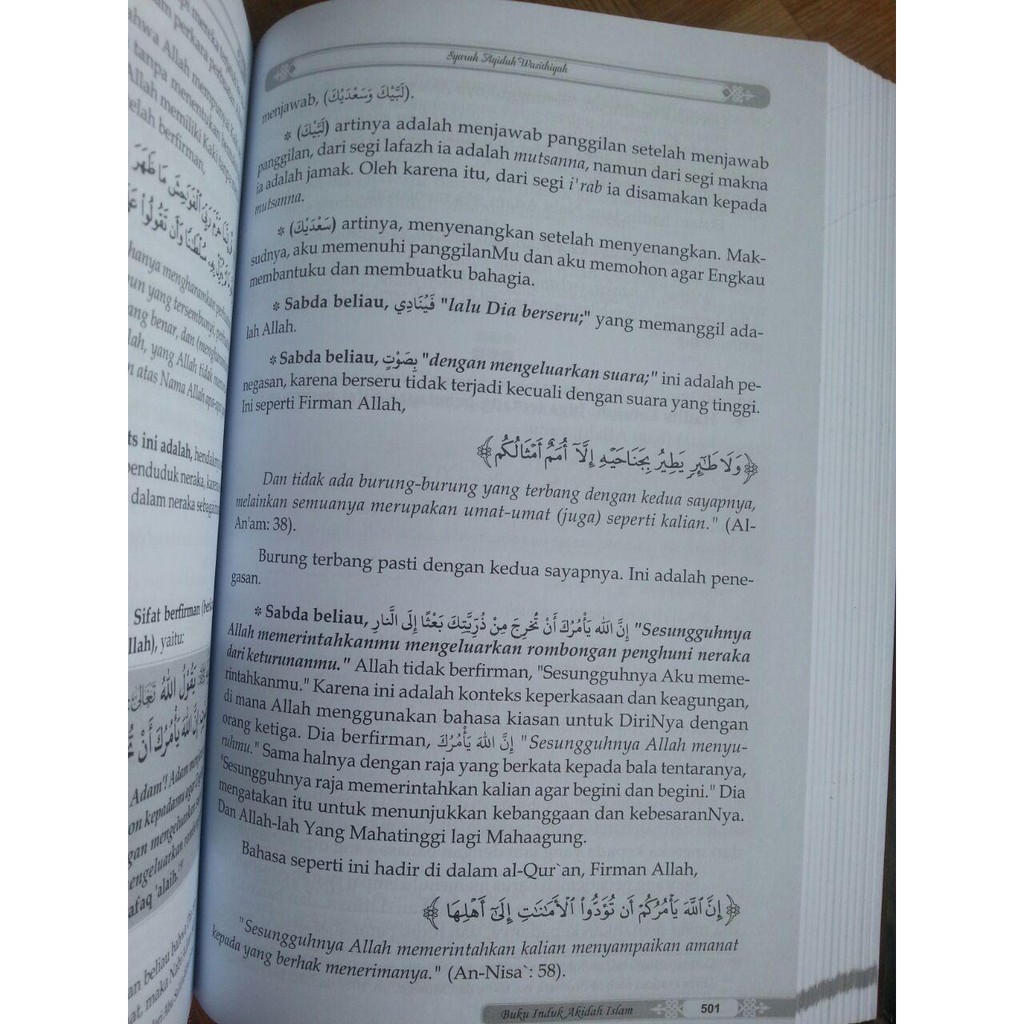 pi mereka
am perkara perbuatan
ahwa Allah mempunyai Kaki
tanpa menentukan
Allah memiliki Kaki tanpa
telah berfirman,
hanya mengharamkan
un yang tersembunyi,
ang benar, dan
lah, yang Allah tidak
n atas Nama Allah apa-apa
ts ini adalah,
penduduk neraka,
dalam neraka
Sifat berfirman
llah), yaitu:
يَقُوْلُ اللهُ تَعَالَى:
إِنَّ اللهَ يَأْمُرُكَ أَنْ
Adam'! Adam
on kepadamu agar
gan mengeluarkan
engeluarkan
afaq 'alaih."
an beliau bahwa
at, maka Nabi
Syarah Aqidah Wasithiyah
menjawab, (لَبَّيْكَ وَسَعْدَيْكَ).
* (لَبَّيْكَ) artinya adalah menjawab panggilan setelah menjawab
panggilan, dari segi lafazh ia adalah mutsanna, namun dari segi makna
ia adalah jamak. Oleh karena itu, dari segi i'rab ia disamakan kepada
mutsanna.
* (سَعْدَيْكَ) artinya, menyenangkan setelah menyenangkan. Mak-
sudnya, aku memenuhi panggilanMu dan aku memohon agar Engkau
membantuku dan membuatku bahagia.
* Sabda beliau, فَيُنَادِي "lalu Dia berseru;" yang memanggil ada-
lah Allah.
* Sabda beliau, بِصَوْتٍ "dengan mengeluarkan suara;" ini adalah pe-
negasan, karena berseru tidak terjadi kecuali dengan suara yang tinggi.
Ini seperti Firman Allah,
﴿وَلَا طَٰٓئِرٍ يَطِيرُ بِجَنَاحَيْهِ إِلَّآ أُمَمٌ أَمْثَالُكُم﴾
Dan tidak ada burung-burung yang terbang dengan kedua sayapnya,
melainkan semuanya merupakan umat-umat (juga) seperti kalian." (Al-
An'am: 38).
Burung terbang pasti dengan kedua sayapnya. Ini adalah pene-
gasan.
* Sabda beliau, إِنَّ اللهَ يَأْمُرُكَ أَنْ تُخْرِجَ مِنْ ذُرِّيَّتِكَ بَعْثًا إِلَى النَّارِ "Sesungguhnya
Allah memerintahkanmu mengeluarkan rombongan penghuni neraka
dari keturunanmu." Allah tidak berfirman, "Sesungguhnya Aku meme-
rintahkanmu." Karena ini adalah konteks keperkasaan dan keagungan,
di mana Allah menggunakan bahasa kiasan untuk DiriNya dengan
orang ketiga. Dia berfirman, إِنَّ اللهَ يَأْمُرُكَ "Sesungguhnya Allah menyu-
ruhmu." Sama halnya dengan raja yang berkata kepada bala tentaranya,
"Sesungguhnya raja memerintahkan kalian agar begini dan begini." Dia
mengatakan itu untuk menunjukkan kebanggaan dan kebesaranNya.
Dan Allah-lah Yang Mahatinggi lagi Mahaagung.
Bahasa seperti ini hadir di dalam al-Qur`an, Firman Allah,
﴿إِنَّ ٱللَّهَ يَأْمُرُكُمْ أَن تُؤَدُّوا۟ ٱلْأَمَٰنَٰتِ إِلَىٰٓ أَهْلِهَا﴾
"Sesungguhnya Allah memerintahkan kalian menyampaikan amanat
kepada yang berhak menerimanya." (An-Nisa`: 58).
Buku Induk Akidah Islam 501